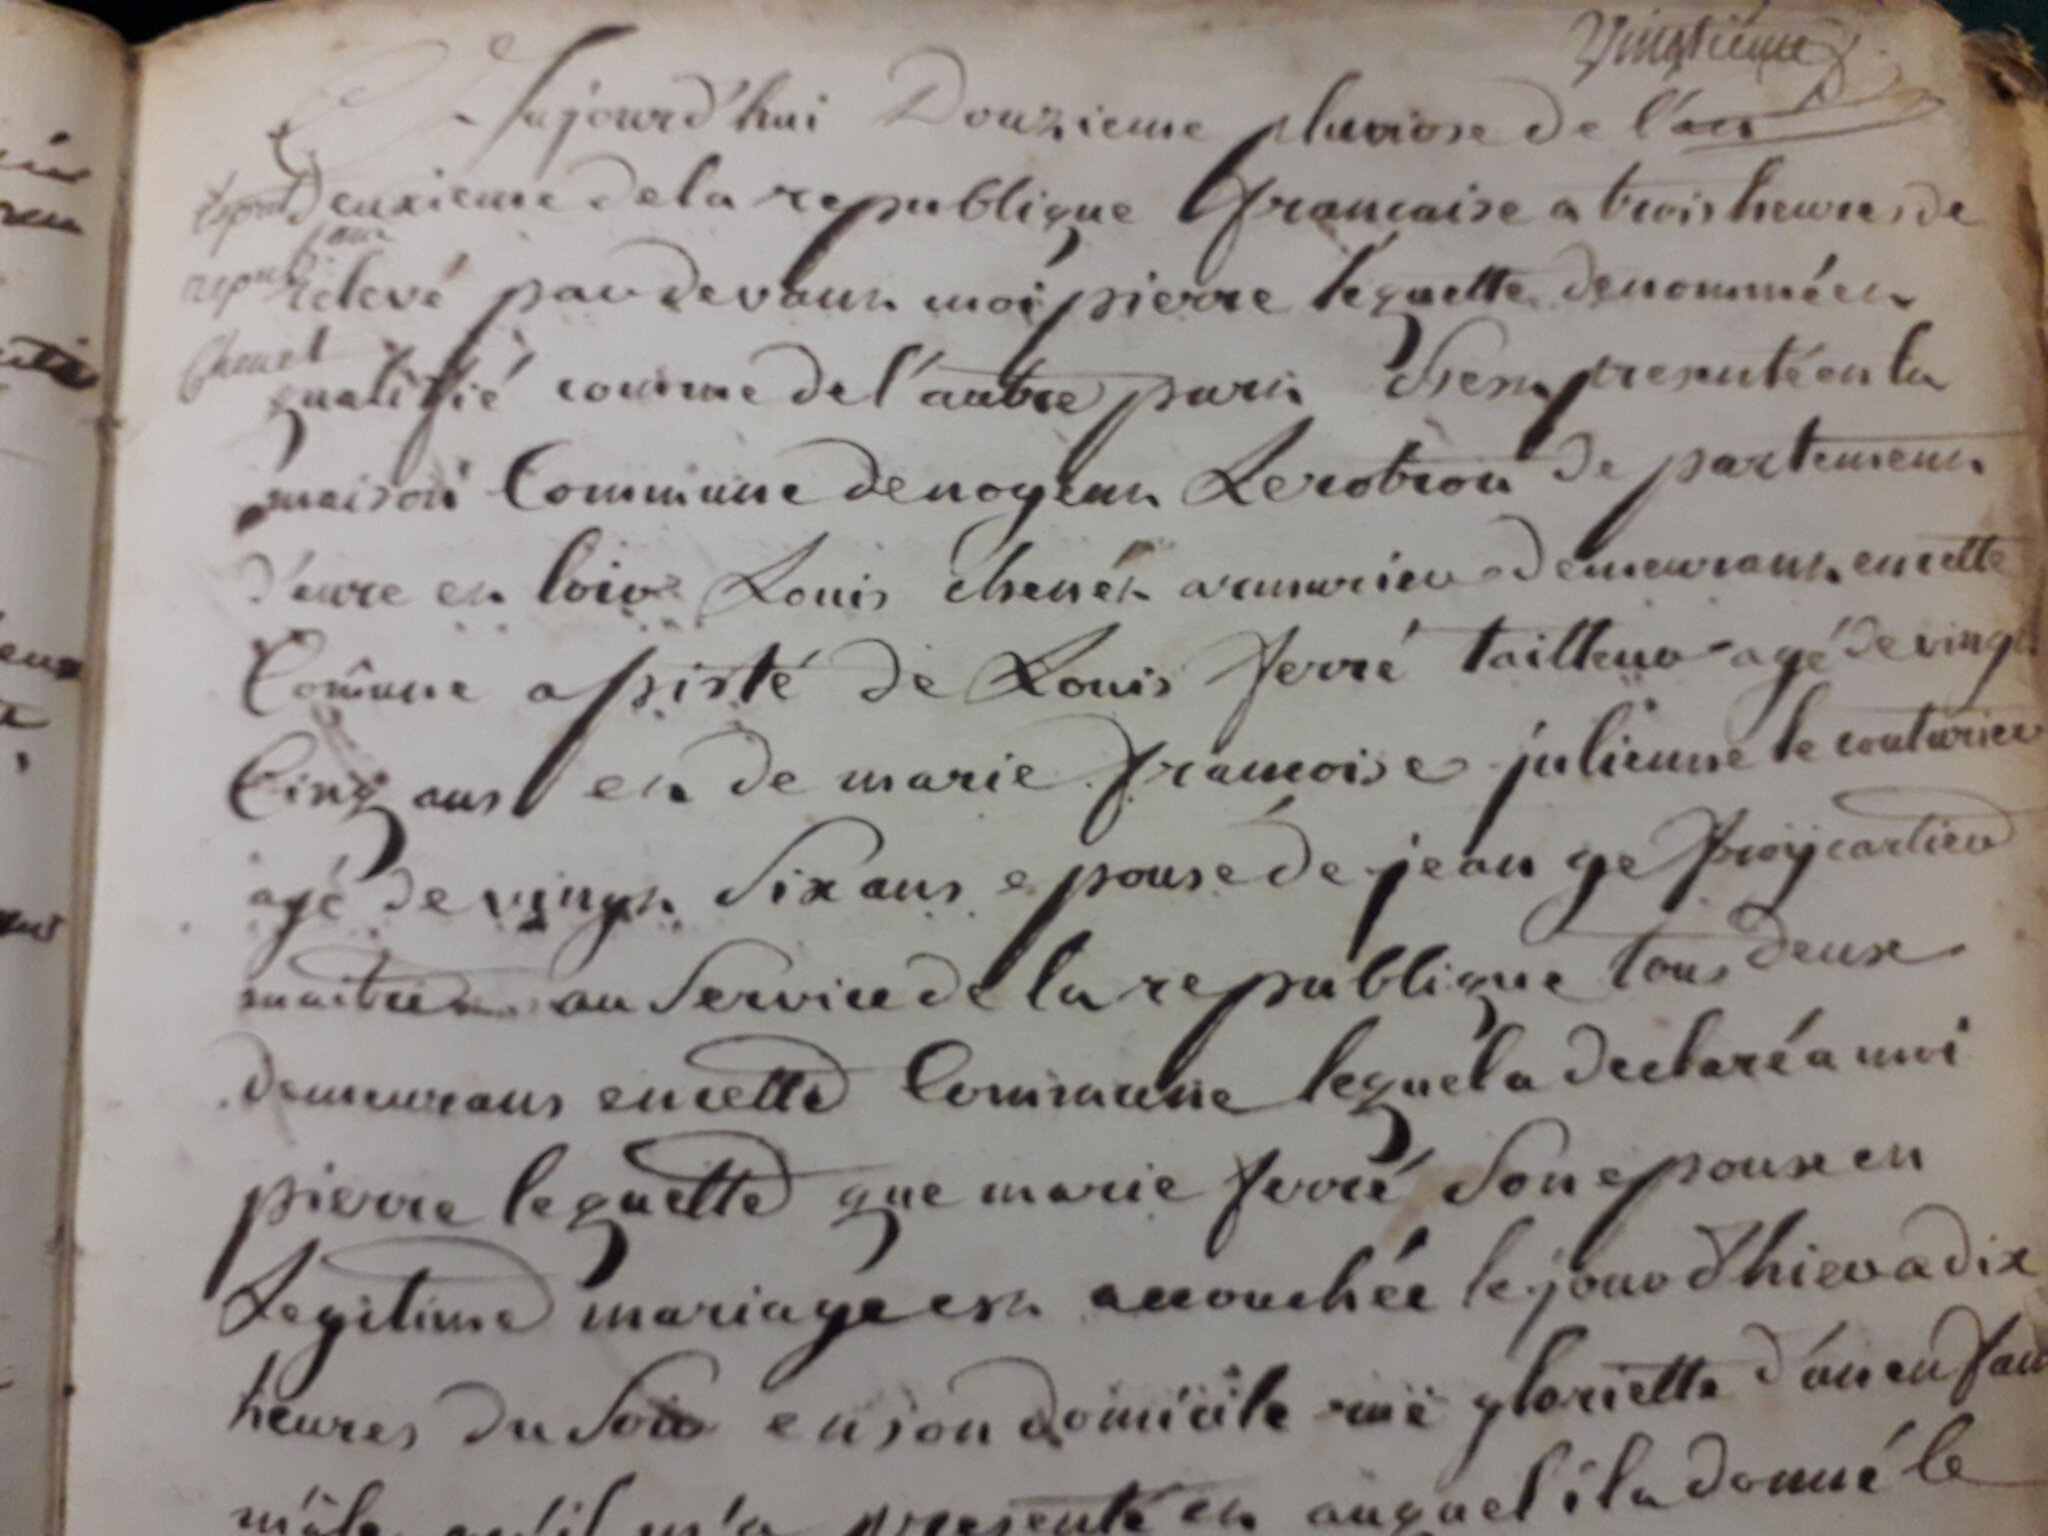 Vingtieme
Aujourd'hui Douzieme pluviose de l'an
Deuxieme de la republique francaise a trois heures de
relevé pardevant moi pierre lequette denommé en
Chenet
qualifié comme de l'autre part s'est presenté en la
maison Commune de nogent Lerotrou departement
d'eure et loir Louis chenét armurier demeurant en cette
Comûne assisté de Louis ferré tailleur agé de vingt
Cinq ans et de marie francoise julienne le couturier
agé de vingt Six ans epouse de jean
au Service de la republique tous deux
demeurans en cette Commune lequel a declaré a moi
pierre lequette que marie ferré Son epouse en
Legitime mariage est accouchée le jour d'hier a dix
heures du Soir en son domicile rüe gloriette d'un enfant
mâle qu'il m'a presenté et auquel il a donné le